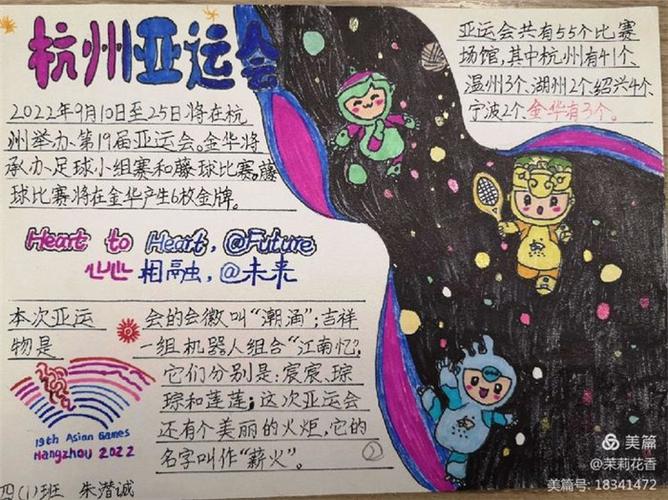 杭州亚运会
2022年9月10日至25日将在杭
州举办第19届亚运会。金华将
承办足球小组赛和藤球比赛,藤
球比赛将在金华产生6枚金牌。
亚运会共有55个比赛
场馆,其中杭州有41个、
温州3个、湖州2个、绍兴4个、
宁波2个、金华有3个。
Heart to Heart, @Future
心心相融,@未来
本次亚运会的会徽叫“潮涌”;吉祥
物是一组机器人组合“江南忆”,
它们分别是:宸宸、琮
琮和莲莲;这次亚运会
还有个美丽的火炬,它的
名字叫作“薪火”。
19th Asian Games
Hangzhou 2022
②
四(1)班 朱潜诚
美篇
@茉莉花香
美篇号: 18341472